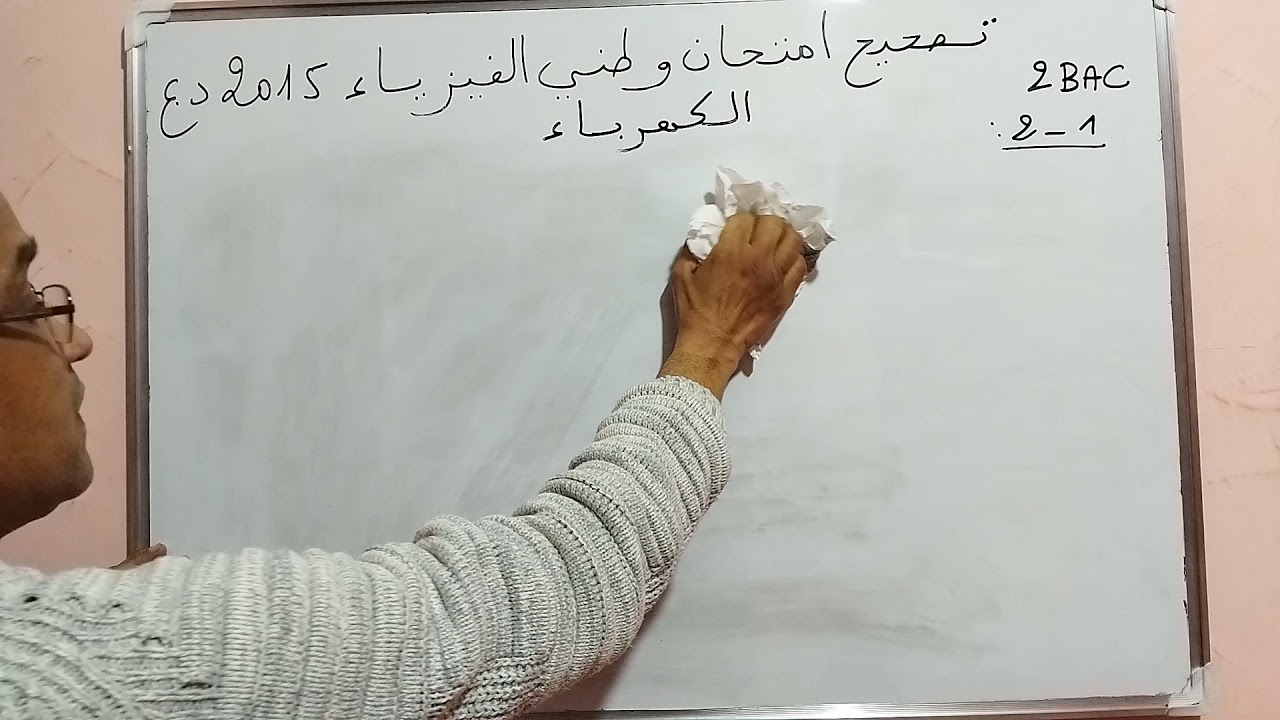 تصحيح امتحان وطني الفيزياء 2015 د ع
الكهرباء
2BAC
2-1 :